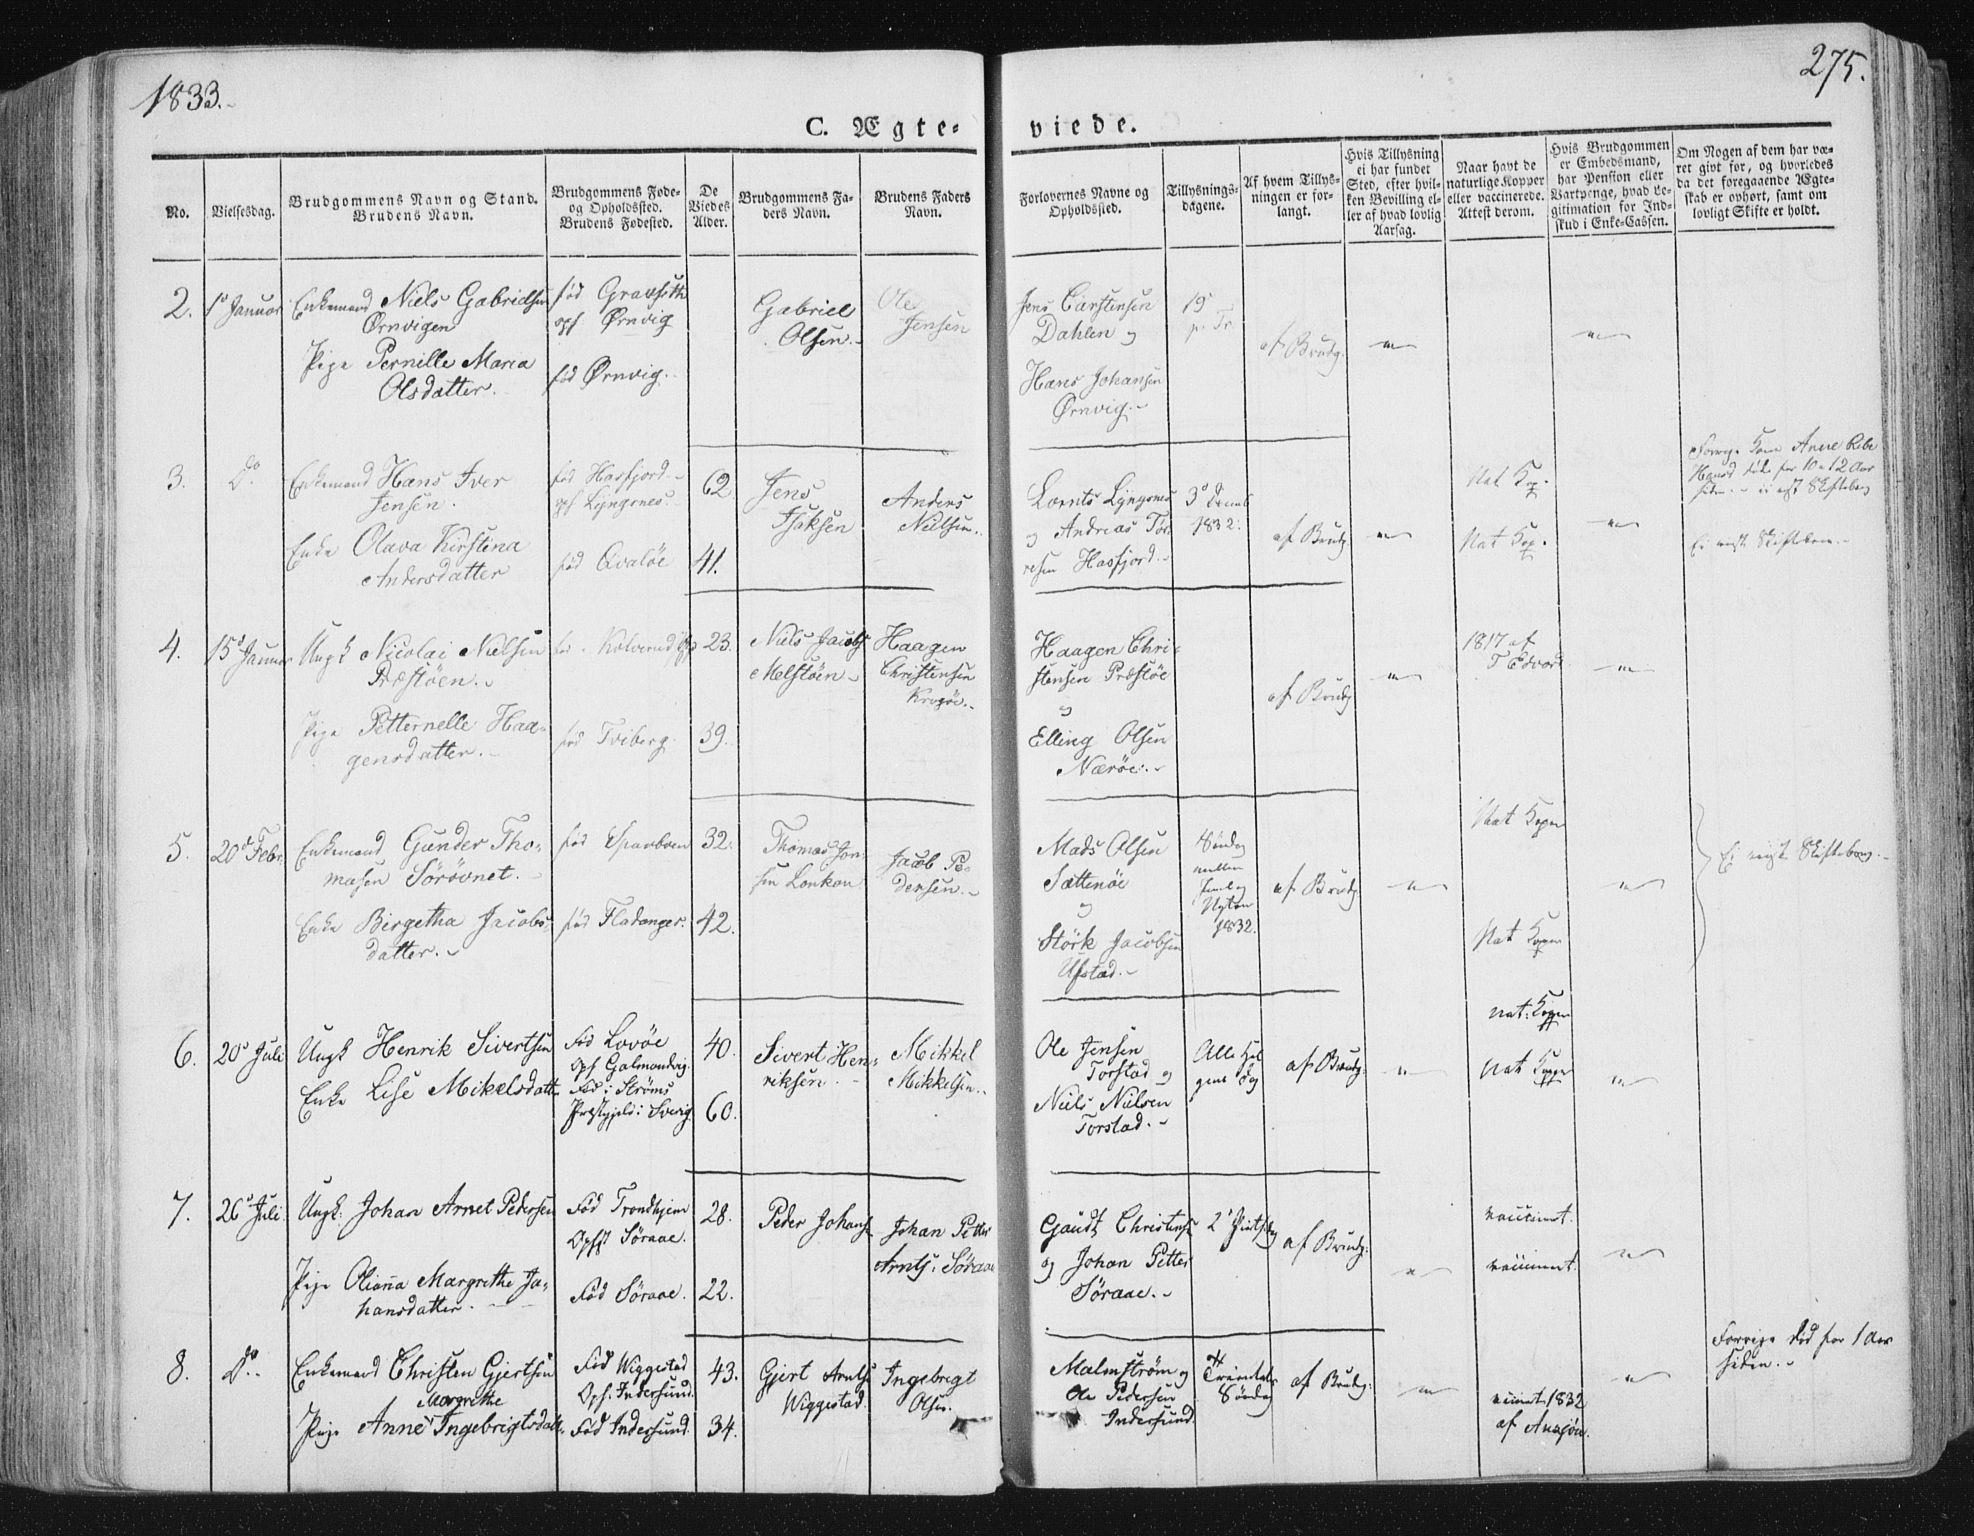 1833.
275.
C. Ægte-viede.
No.
Vielsesdag.
Brudgommens Navn og Stand.
Brudens Navn.
Brudgommens Føde-
og Opholdssted.
Brudens Fødested.
De
Viedes
Alder.
Brudgommens Fa-
ders Navn.
Brudens Faders
Navn.
Forlovernes Navne og
Opholdssted.
Tillysnings-
dagene.
Af hvem Tillys-
ningen er for-
langt.
Hvis Tillysning
ei har fundet
Sted, efter hvil-
ken Bevilling el-
ler af hvad lovlig
Aarsag.
Naar havt de
naturlige Kopper
eller vaccinerede.
Attest derom.
Hvis Brudgommen
er Embedsmand,
har Pension eller
Vartpenge, hvad Le-
gitimation for Ind-
skud i Enke-Cassen.
Om Nogen af dem har væ-
ret givt før, og hvorledes
da det foregaaende Ægte-
skab er ophørt, samt om
lovligt Skifte er holdt.
2.
1 Januar
Enkemand Niels Gabrielsen
Ørnvigen
Pige Pernille Maria
Olsdatter.
fød
oph Ørnvig
fød Ørnvig.
Gabriel
Olsen.
Ole
Jensen
Jens Carstensen
Dahlen og
Hans Johansen
Ørnvig.
19
p. Tr
af Brudg.
3.
Do.
Enkemand Hans Iver
Jensen.
Enke Olava Kirstina
Andersdatter
fød Hasfjord
oph Lyngsnes.
fød Qvaløe
62
41.
Jens
Isaksen
Anders
Nielsen.
Lornts Lyngsnes
og Andreas Tor-
resen Hasfjord.
3
1832.
af Brudg.
Nat Kop.
Nat Kop.
Forrige Kone Anne
død for 10 a 12 Aar
siden
4.
15 Januar
Ungk Nicolai Nielsen
Præstøen.
Pige Petternelle Haa-
gensdatter.
fød Kolvereid
fød Tviberg.
23.
39.
Niels Jacobs
Melstøen
Haagen
Christensen
Haagen Chri-
stensen Præstøe
og
Elling Olsen
Nærøe.
af Brudg
1817 af
5.
20 Febr.
Enkemand Gunder Tho-
masen Sørøvnet.
Enke Birgetha Jacobs
datter.
fød Sparboen
fød Fladanger.
32.
42.
Thomas Jon-
sen
Jacob Pe-
dersen.
Mads Olsen
Sættenøe
og
Størk Jacobsen
Ufstad.
Søndag
mellem
Juul og
Nytaar
1832.
af Brudg
Nat Kopper
Nat Kopper
Ei Skiftebrev.
6.
20 Juli
Ungk Henrik Sivertsen
Enke Lise Mikelsdatt
Fød Lovøe
Oph
Fød i Strøms
Præstgjeld i Sverig.
40.
60.
Sivert Hen-
riksen
Mikkel
Mikkelsen.
Ole Jensen
Torstad og
Niels Nielsen
Torstad.
Alle Hel
gens Dag
af Brudg.
nat: Kopper
Nat Kopper
7.
26 Juli.
Ungk. Johan Arnet Pedersen
Pige Oliana Margrethe Jo-
hansdatter.
Fød Trondhjem
Ophst Søraae.
Fød Søraae.
28.
22.
Peder Johans
Johan Petter
Arnts: Søraae
Gaudt Christens
og Johan Petter
Søraae.
2 Pintsdag
af Brudg:
vaccineret.
vaccineret.
8.
Do.
Enkemand Christen Gjertsen
Margrethe
Pige Anne Ingebrigtsdatt.
Fød Wiggestad
Oph. Indersund.
Fød Indersund.
43.
34.
Gjert Arnts
Wiggestad.
Ingebrigt
Olsen.
Malmstrøm og
Ole Pedersen
Indersund.
4
Trinitatis
Søndag
af Brudg:
1832
af
Forrige død for 1 Aar
siden.